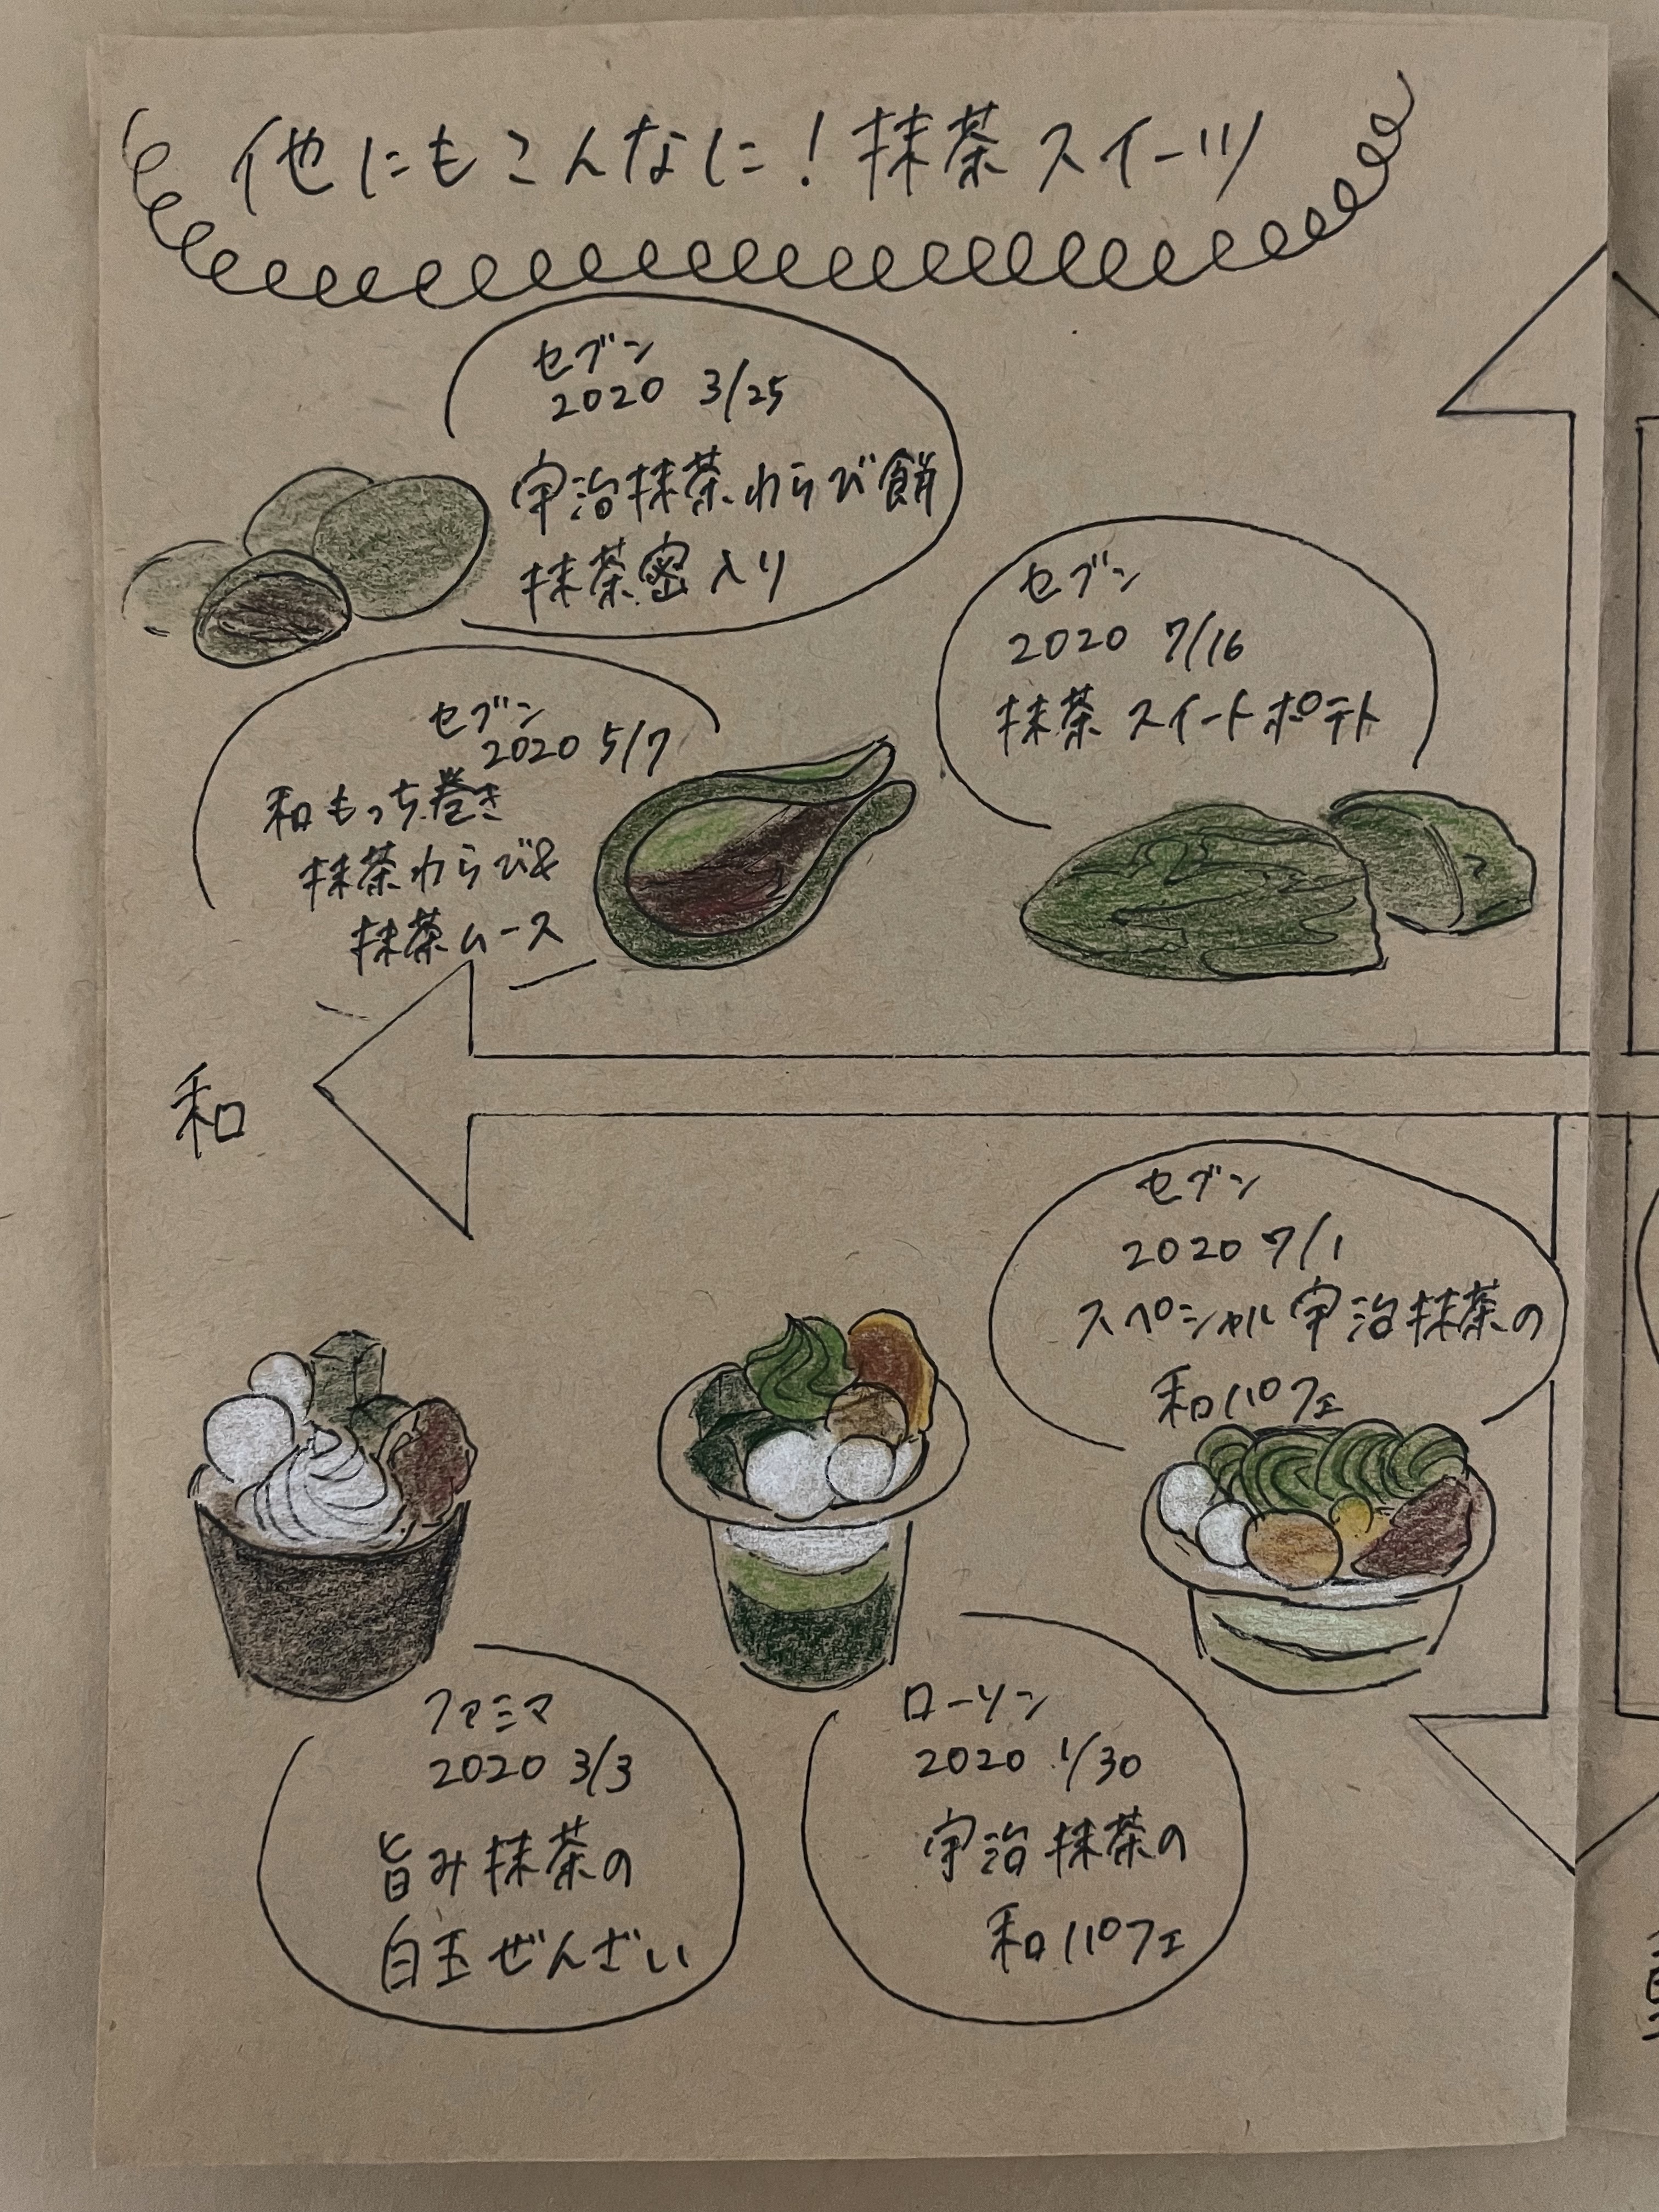 他にもこんなに！抹茶スイーツ
セブン
2020 3/25
宇治抹茶わらび餅
抹茶蜜入り
セブン
2020 7/16
抹茶スイートポテト
セブン
2020 5/7
和もっち巻き
抹茶わらび&
抹茶ムース
和
セブン
2020 7/1
スペシャル宇治抹茶の
和パフェ
ファミマ
2020 3/3
旨み抹茶の
白玉ぜんざい
ローソン
2020 1/30
宇治抹茶の
和パフェ